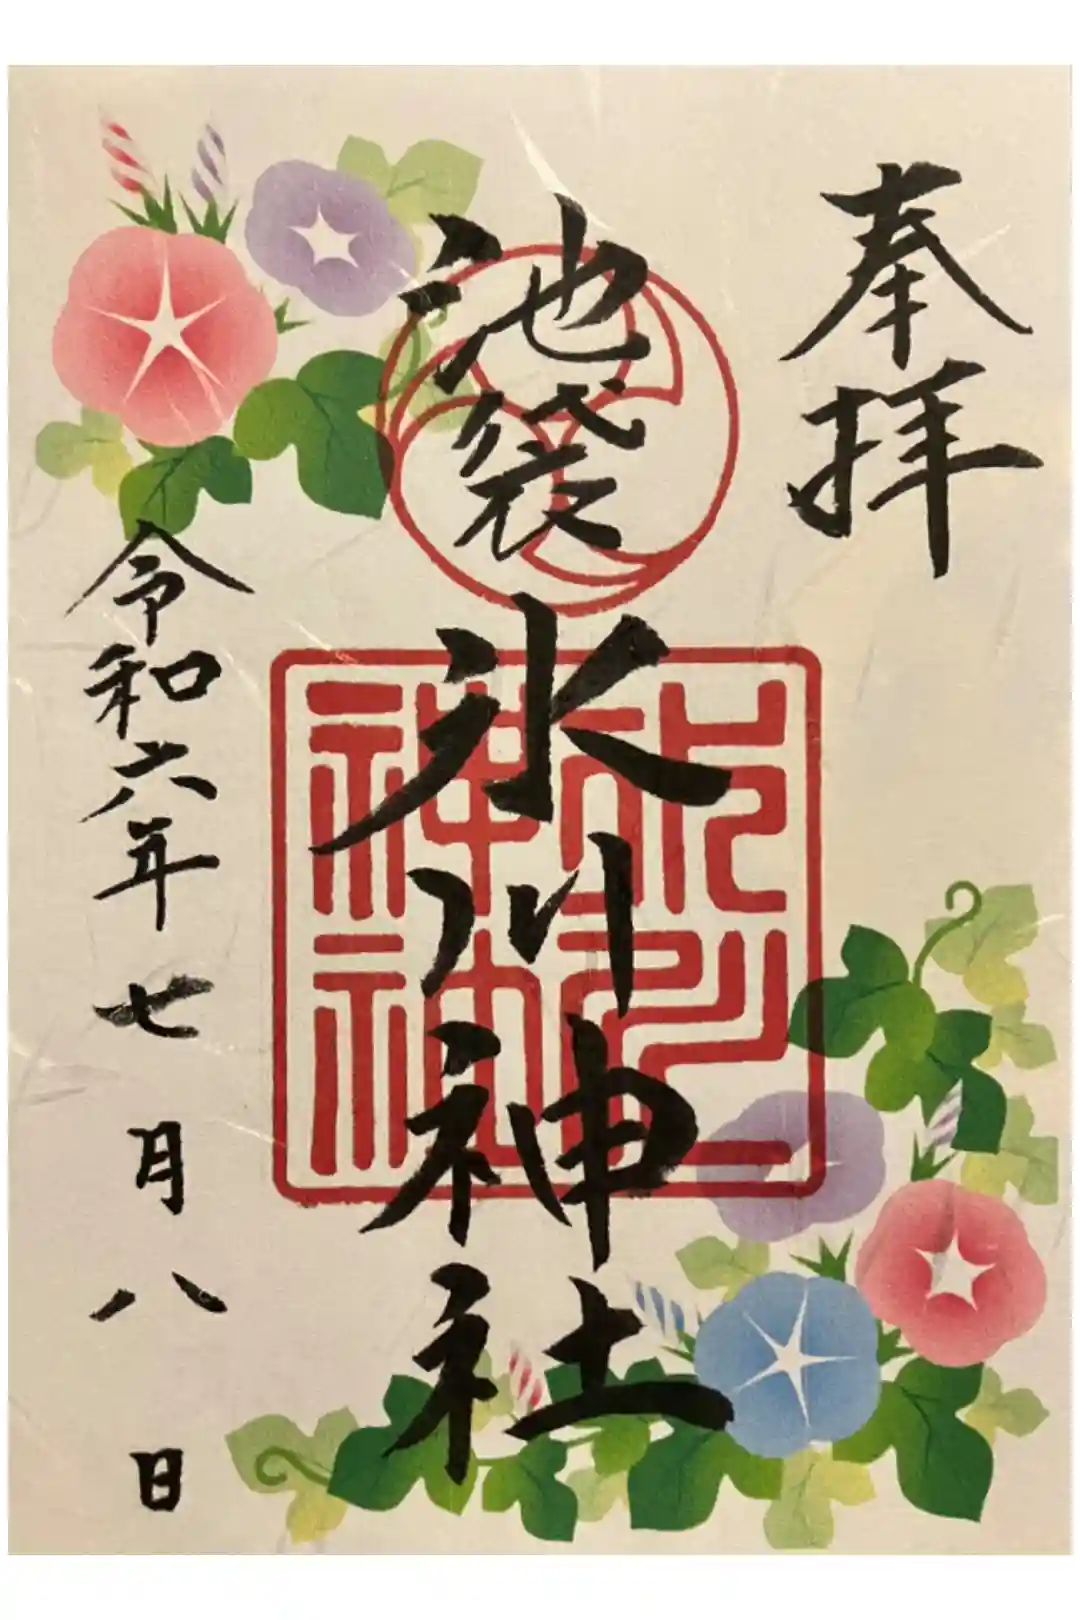 奉拝
池袋氷川神社
令和六年七月八日